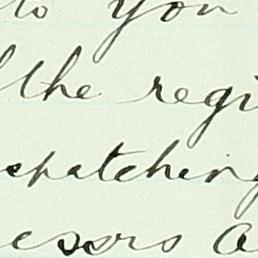 to you
the regi
spatching
essrs a